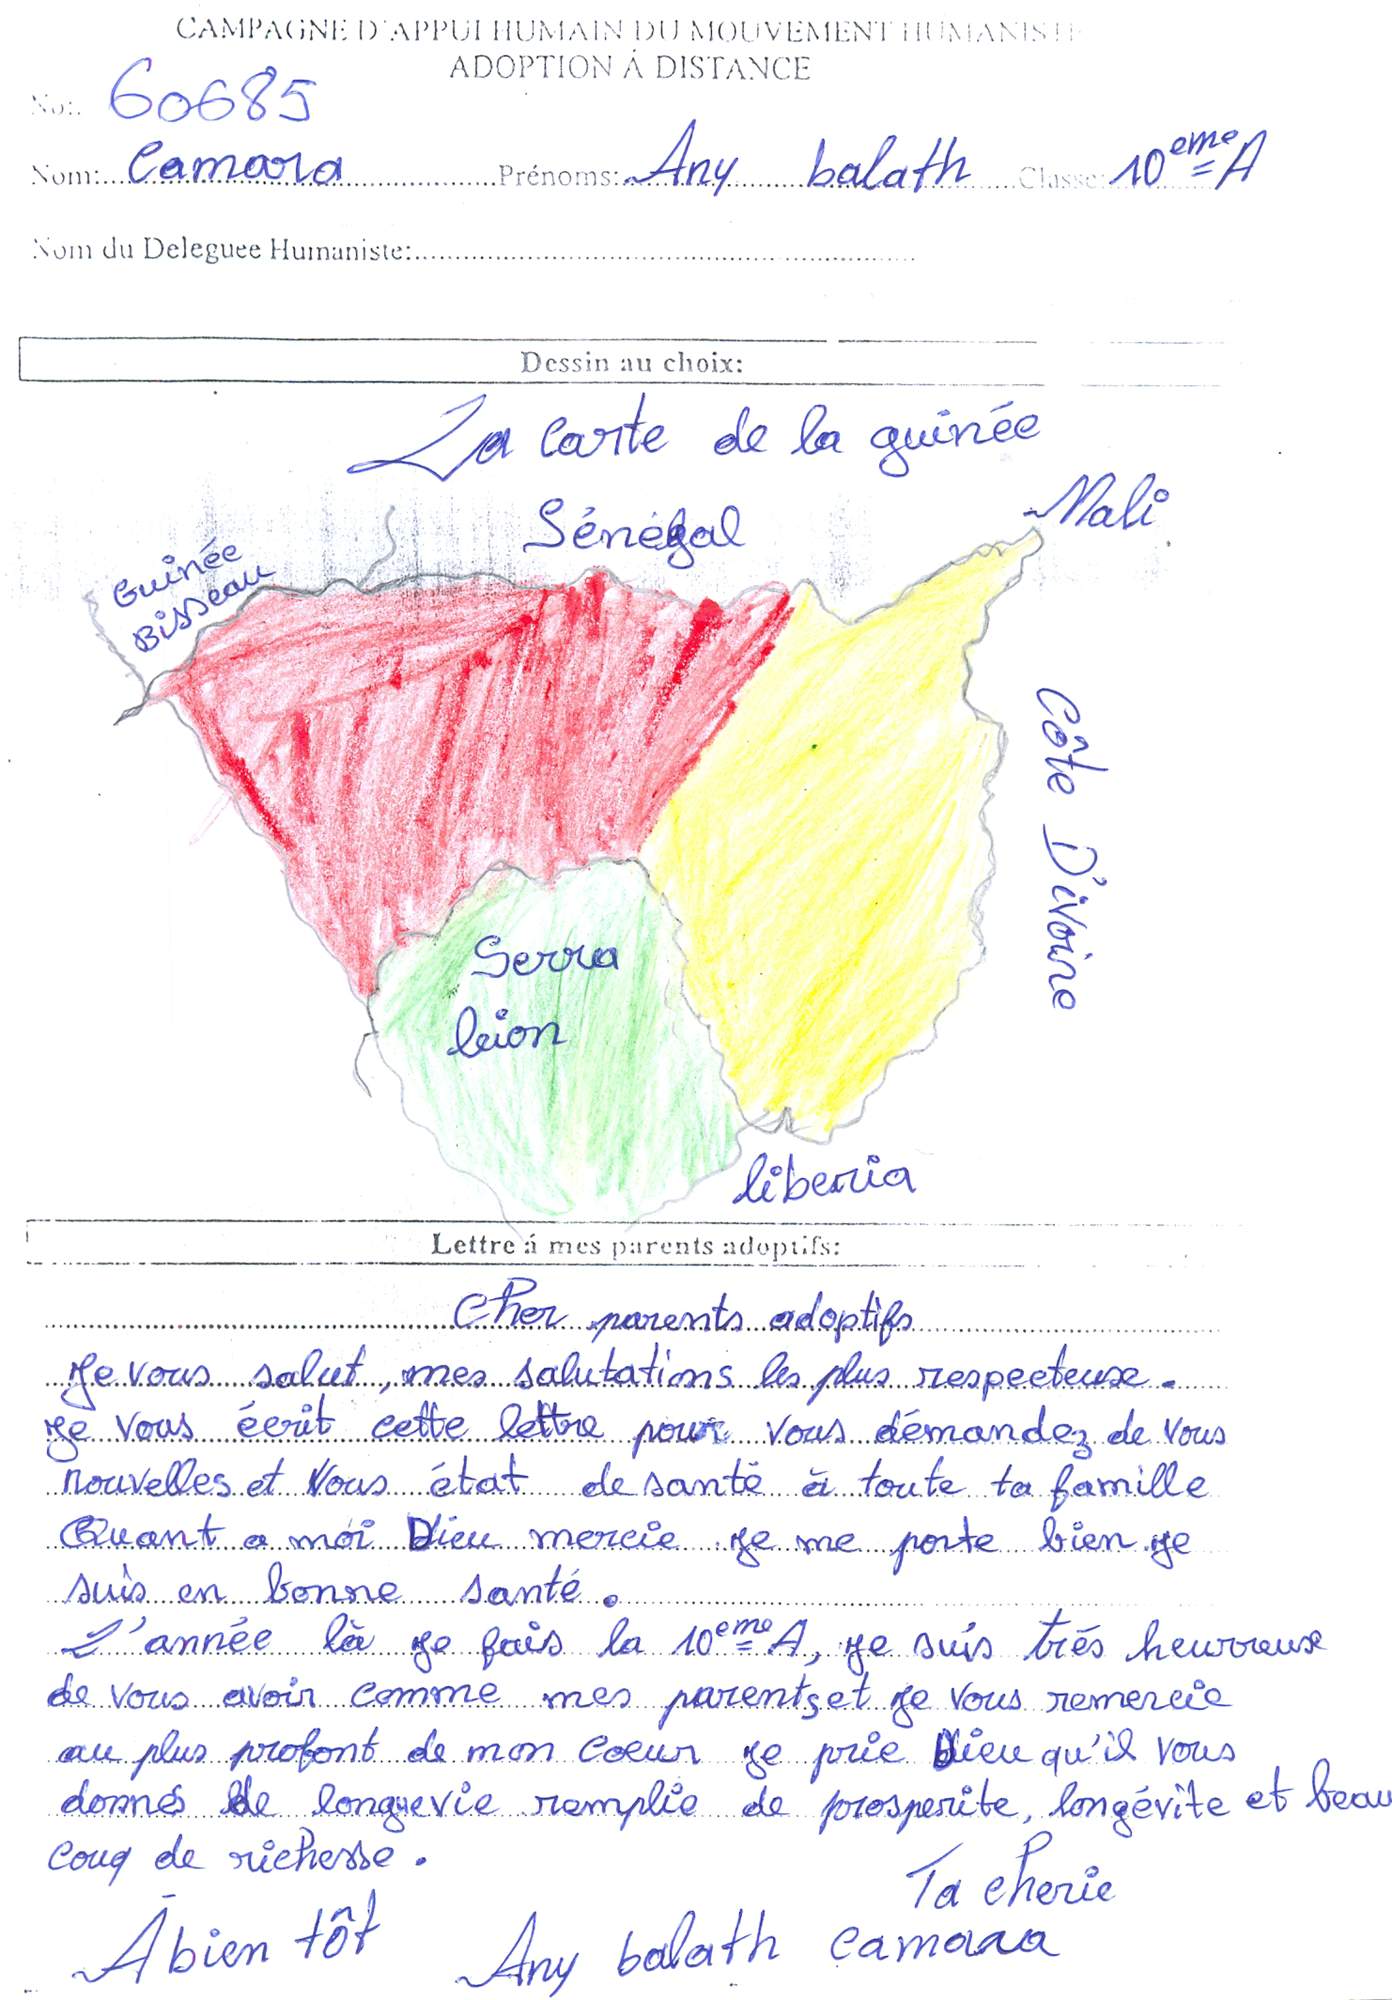 CAMPAGNE D'APPUI HUMAIN DU MOUVEMENT HUMANISTE
ADOPTION Á DISTANCE
No:. 60685
Nom: Camara Prénoms: Any balath Classe: 10eme A
Nom du Deleguee Humaniste:
Dessin au choix:
La carte de la guinée
Sénégal
Mali
Guinée
Bisseau
Côte D'ivoire
Serra
leion
liberia
Lettre á mes parents adoptifs:
Cher parents adoptifs
Je vous salut, mes salutations les plus respecteuse.
Je vous écrit cette lettre pour vous démandez de vous
nouvelles et vous état de santé à toute ta famille
Quant a moi Dieu mercie je me porte bien je
suis en bonne santé.
L'année là je fais la 10eme A, je suis trés heurreuse
de vous avoir comme mes parents, et je vous remercie
au plus profont de mon coeur je prie Dieu qu'il vous
donnés de longuevie remplie de prosperite, longévite et beau
coup de richesse.
Ta cherie
À bien tôt Any balath camara